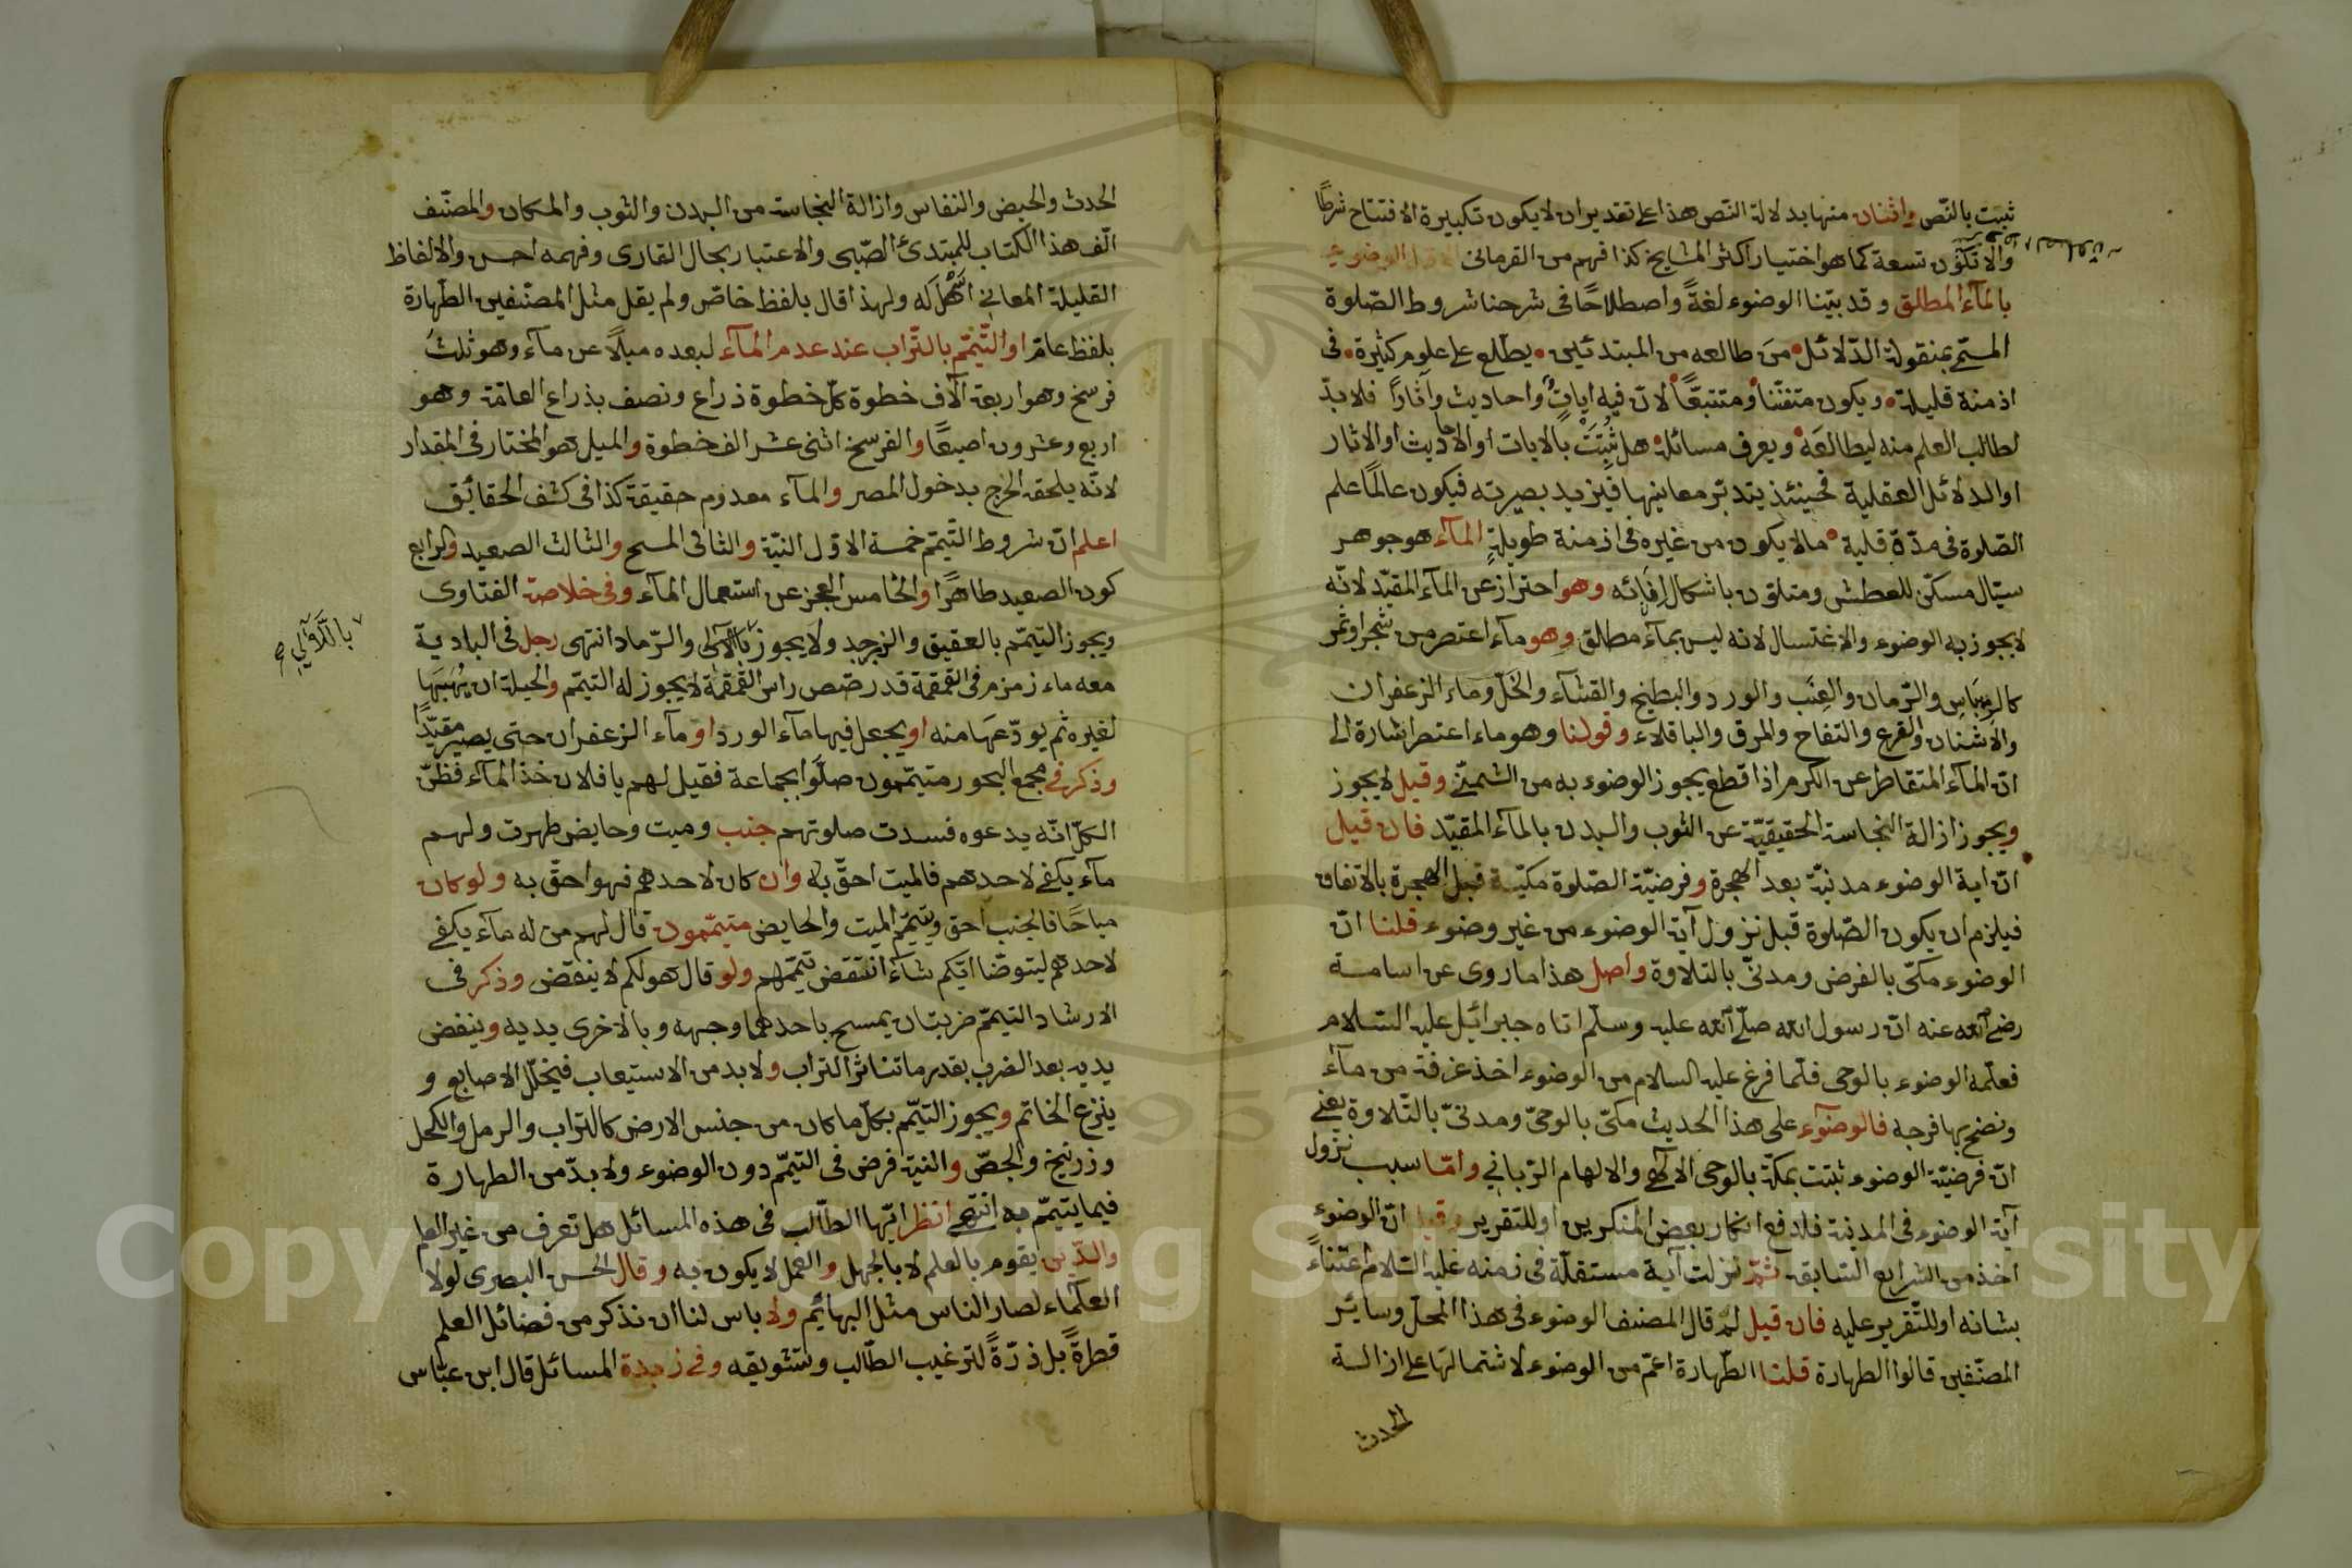 ثبت بالنّص واثنان منها بدلالة النّص هذا على تقدير ان لا يكون تكبيرة الافتتاح شرطًا
والّا تكون تسعة كما هو اختيار اكثر المشايخ كذا فهم من القرمانى الاوّل الوضوء
بالمآء المطلق وقد بيّنا الوضوء لغةً واصطلاحًا فى شرحنا شروط الصّلوة
المسمّى بمنقولة الدّلائل من طالعه من المبتدئين يطّلع على علوم كثيرة فى
ازمنة قليلة ويكون متفنّنا ومتتبّعًا لانّ فيه اياتٍ واحاديث وآثارًا فلا بدّ
لطالب العلم منه ليطالعَه ويعرف مسائله هل ثُبتَتْ بالايات او الاحاديث او الاثار
او الدلائل العقلية فحينئذ يتدبّر معاينها فيزيد بصيرته فيكون عالمًا علم
الصّلوة فى مدّة قلية ما لا يكون من غيره فى ازمنة طويلةٍ المآء هو جوهر
سيّال مسكّن للعطش ومتلوّن باشكال اِفَانِه وهو احتراز عن المآء المقيّد لانّه
لا يجوز به الوضوء والاغتسال لانه ليس بمآء مطلق وهو مآء اعتصر من شجر او ثمر
كالريباس والرّمان والعِنَب والورد والبطيخ والقشآء والخلّ وماء الزعفران
والاشنان والقرع والتفاح والمرق والباقلاء وقولنا وهو ماء اعتصر اشارة الى
انّ المآء المتقاطر عن الكرم اذا قطع يجوز الوضوء به من الشمنّى وقيل لا يجوز
ويجوز ازالة النجاسة الحقيقيّة عن الثوب والبدن بالمآء المقيّد فان قيل
انّ اية الوضوء مدنيّة بعد الهجرة وفرضيّة الصّلوة مكيّة قبل الهجرة بالاتفاق
فيلزم ان يكون الصّلوة قبل نزول آية الوضوء من غير وضوء قلنا انّ
الوضوء مكّى بالفرض ومدنىّ بالتلاوة واصل هذا ما روى عن اسامة
رضى الله عنه انّ رسول الله صلّى الله عليه وسلّم اتاه جبرائيل عليه السّلام
فعلّمه الوضوء بالوحى فلمّا فرغ عليه السلام من الوضوء اخذ غرفة من مآء
ونضح بها فرجه فالوضوء على هذا الحديث مكىّ بالوحىّ ومدنىّ بالتّلاوة يعنى
انّ فرضيّة الوضوء ثبتت بمكّة بالوحى الآلهى والالهام الرّبانى وامّا سبب نزول
آية الوضوء فى المدنية فلدفع انكار بعض المنكرين او للتقرير وقيل انّ الوضوء
اخذ من الشرايع السّابقة ثمّ نزلت آية مستقلّة فى زمنه عليه السّلام اعتناءً
بشانه او للتّقرير عليه فان قيل لم قال المصنف الوضوء فى هذا المحلّ وسائر
المصنّفين قالوا الطهارة قلنا الطّهارة اعمّ من الوضوء لاشتمالها على ازالة
الحدث
الحدث والحيض والنفاس وازالة النجاسة من البدن والثوب والمكان والمصنّف
الّف هذا الكتاب للمبتدئ الصّبى والاعتبار بحال القارى وفهمه احسن والالفاظ
القليلة المعانى اَسْهَل له ولهذا قال بلفظ خاصّ ولم يقل مثل المصنّفين الطّهارة
بلفظ عامّ او التّيمّم بالتّراب عند عدم المآء لبعده ميلًا عن مآء وهو ثلثُ
فرسخ وهو اربعة آلاف خطوة كلّ خطوة ذراع ونصف بذراع العامّة وهو
اربع وعشرون اصبعًا والفرسخ اثنى عشر الف خطوة والميل هو المختار فى المقدار
لانّه يلحقه الحرج بدخول المصر والمآء معدوم حقيقة كذا فى كشف الحقائق
اعلم انّ شروط التّيمّم خمسة الاوّل النيّة والثانى المسح والثالث الصعيد والرابع
كون الصعيد طاهرًا والخامس العجز عن استعمال المآء وفى خلاصة الفتاوى
ويجوز التيمّم بالعقيق والزبرجد ولا يجوز بالآلى والرّماد انتهى رجل فى البادية
باللّآلى صح
معه ماء زمزم فى القمقمة قد رصّص راس القمقمة لا يجوز له التيمّم والحيلة ان يهبَها
لغيره ثم يودّعَها منه او يجعل فيها مآء الورد او مآء الزعفران حتى يصير مقيّدًا
وذكر فى مجمع البحور متيمّمون صلّوا بجماعة فقيل لهم يا فلان خذ المآء فظنّ
الكلّ انّه يدعوه فسدت صلوتهم جنب وميت وحايض طهرت ولهم
مآء يكفى لاحدهم فالميت احقّ به وان كان لاحدهم فهو احقّ به ولو كان
مباحًا فالجنب احق ويتيمّم الميت والحايض متيمّمون قال لهم من له مآء يكفى
لاحدهم ليتوضّأ ايّكم شآء انتقض تيمّمهم ولو قال هو لكم لا ينقض وذكر فى
الارشاد التيمّم ضربتان يمسح باحدهما وجهه وبالاخرى يديه وينفض
يديه بعد الضرب بقدر ما تناثر التراب ولا بد من الاستيعاب فيخلّل الاصابع و
ينزع الخاتم ويجوز التيمّم بكلّ ما كان من جنس الارض كالتراب والرمل والكحل
وزرنيخ والجصّ والنية فرض فى التيمّم دون الوضوء ولا بدّ من الطهارة
فيما يتيمّم به انتهى انظر ايّها الطّالب فى هذه المسائل هل تعرف من غير العلم
والدّين يقوم بالعلم لا بالجهل والعمل لا يكون به وقال الحسن البصرى لولا
العلمآء لصار الناس مثل البهائم ولا باس لنا ان نذكر من فضائل العلم
قطرةً بل ذرّةً لترغيب الطّالب وتشويقه وفى زبدة المسائل قال ابن عبّاس
Copyright © King Saud University